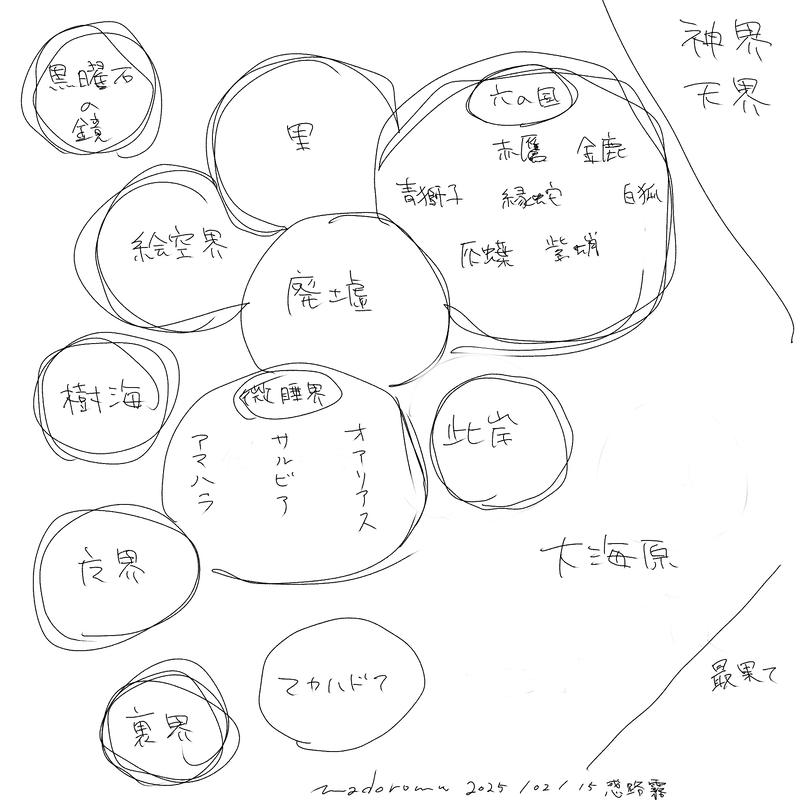 神界
天界
黒曜石
の
鏡
里
六の国
赤鷹 金鹿
青獅子 縁蛇 白狐
灰蝶 紫蛸
絵空界
廃墟
樹海
微睡界
オアリアス
サルビア
アマハラ
此岸
界
大海原
裏界
マカハドア
最果て
madoromu 2025/02/15 惑路霧